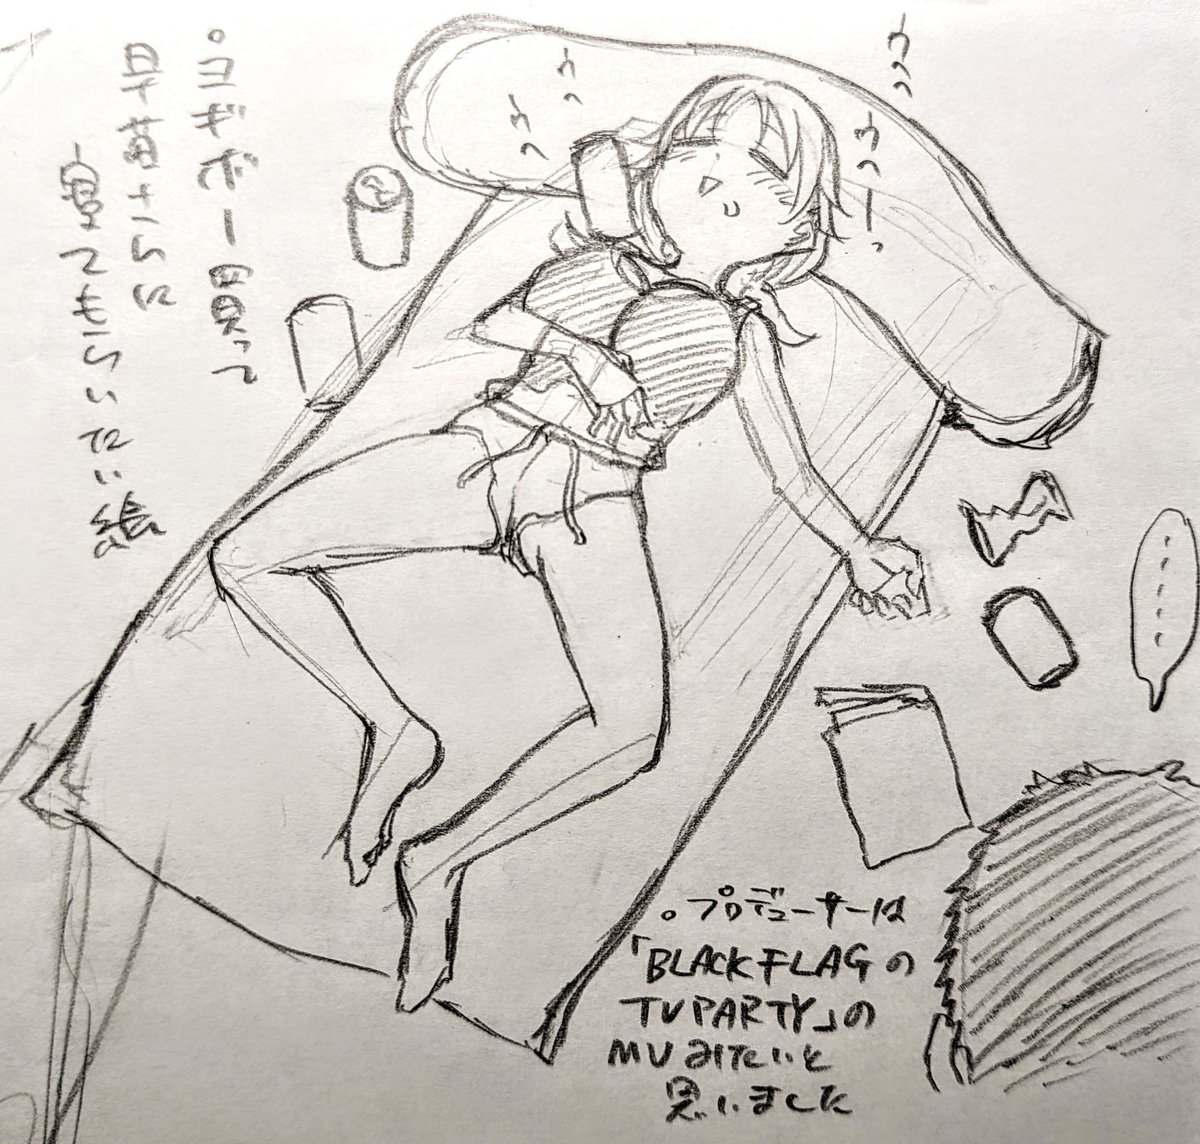 。ヨギボー買って
早苗さんに
寝てもらいたい絵
ウッ
ウッ
ウッ
ウッー
……
。プロデューサーは
「BLACK FLAGの
TV PARTY」の
MVみたいと
思いました